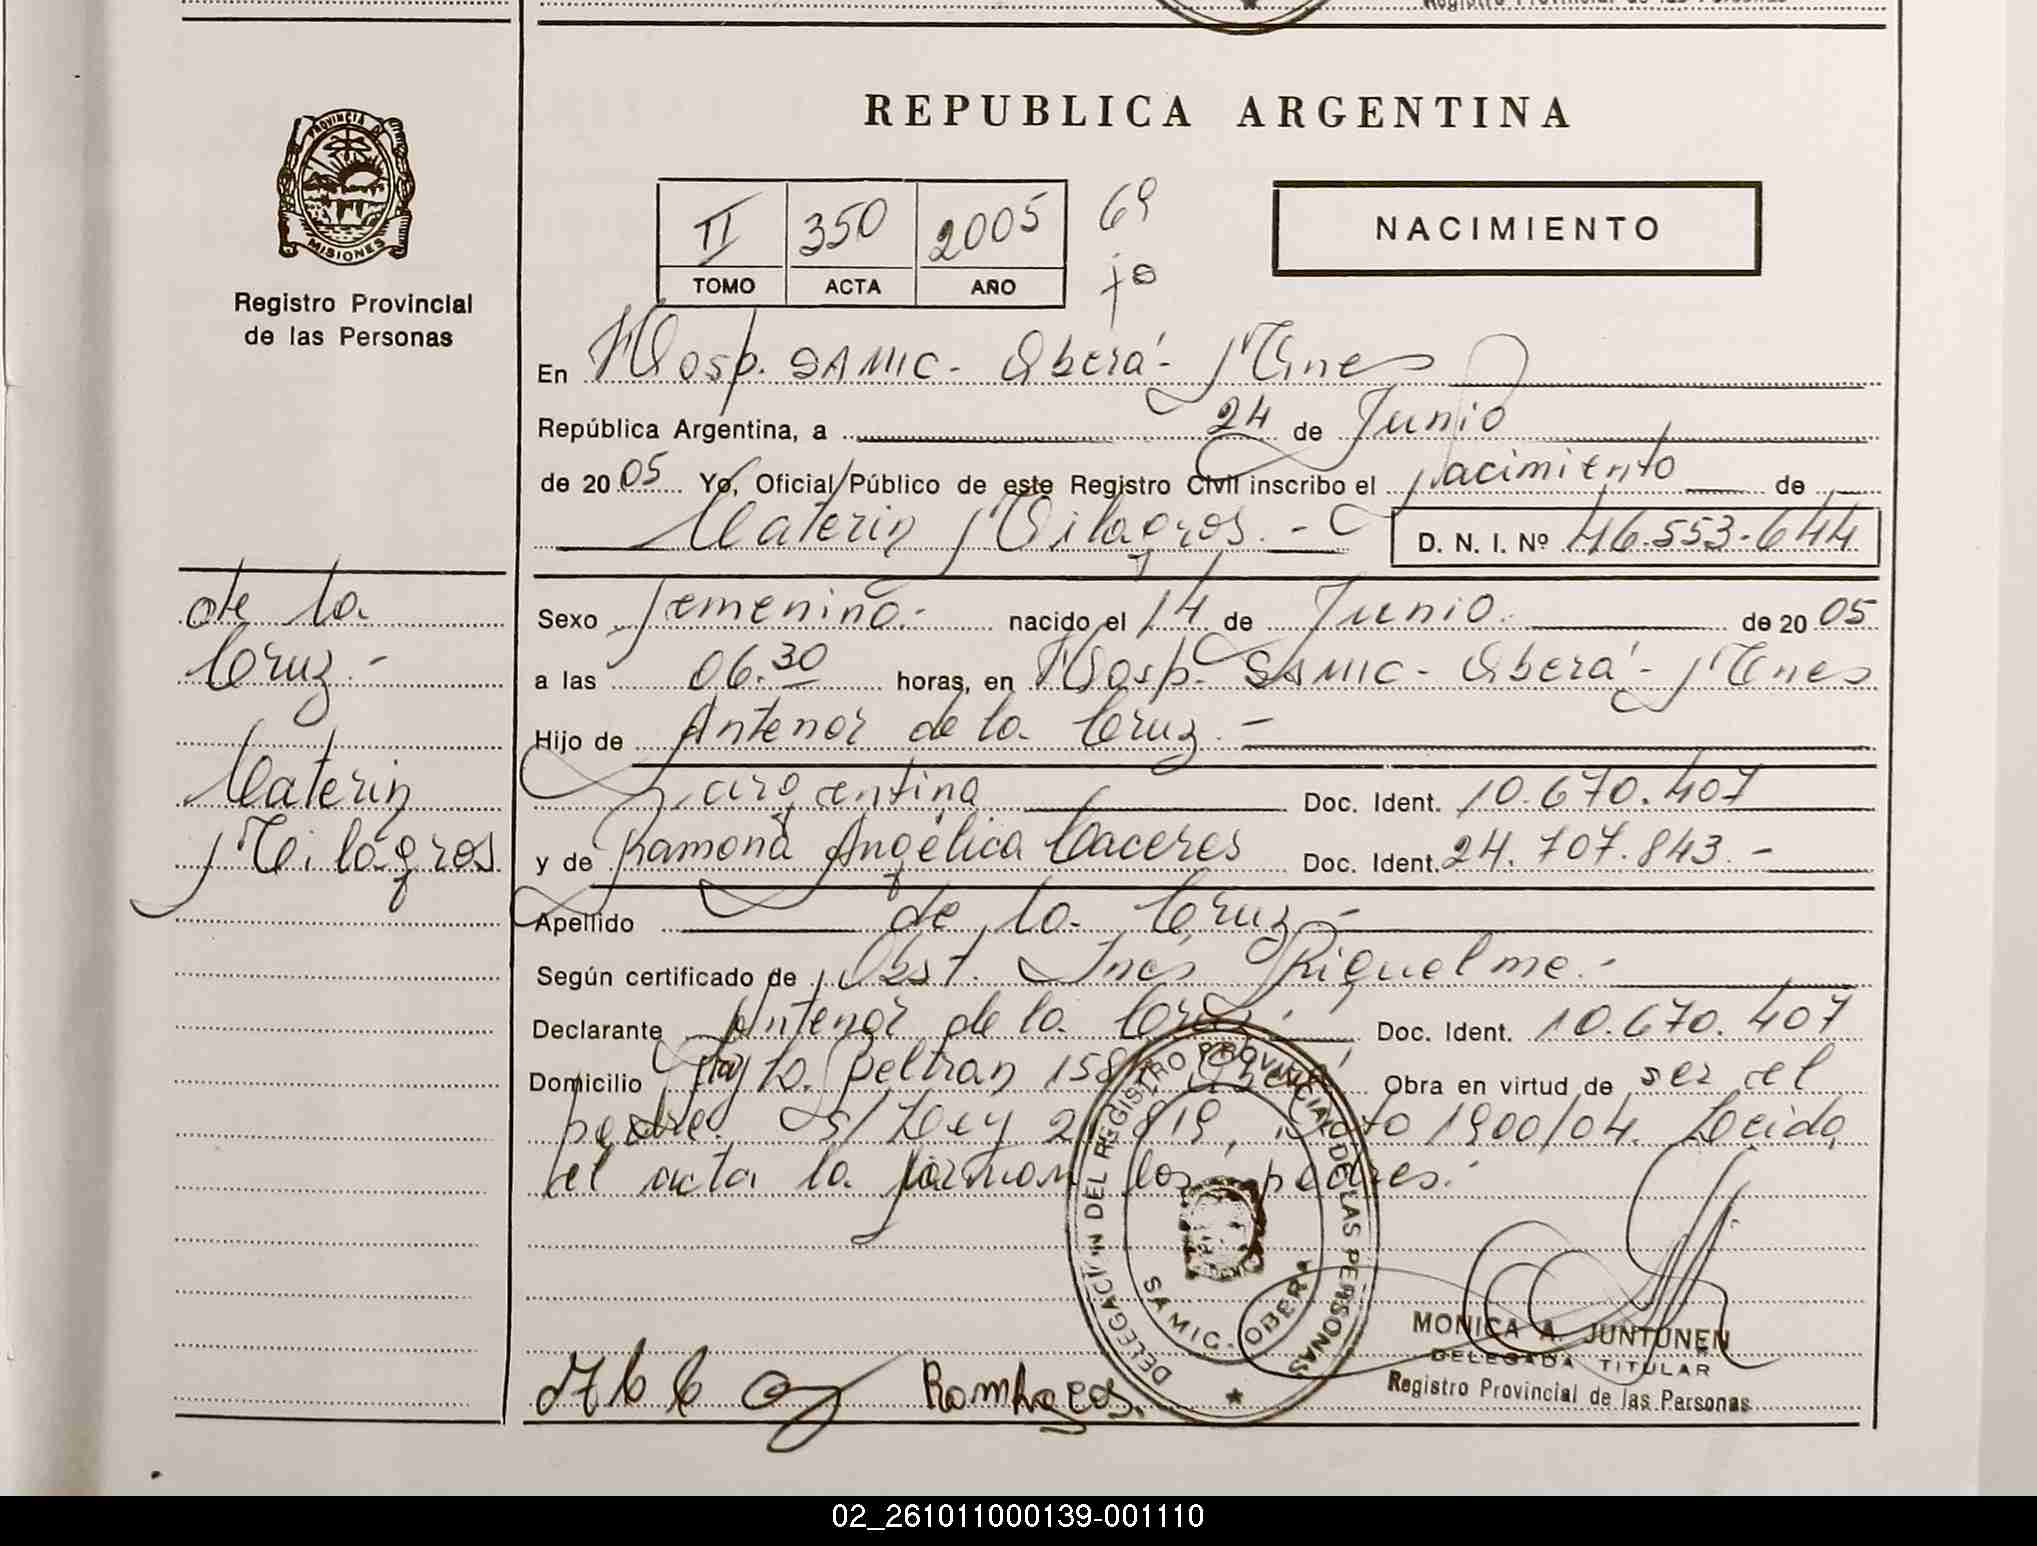 Registro Provincial de las Personas
REPUBLICA ARGENTINA
PROVINCIA DE
MISIONES
Registro Provincial
de las Personas
II 350 2005 69
TOMO ACTA AÑO
NACIMIENTO
En Hosp. SAMIC - Oberá - Mnes
República Argentina, a 24 de Junio
de 2005 Yo, Oficial Público de este Registro Civil inscribo el nacimiento de
Caterin Milagros. - D. N. I. Nº 46.553.644
de la
Cruz. -
Caterin
Milagros
Sexo femenino. - nacido el 14 de Junio. de 2005
a las 06.30 horas, en Hosp. SAMIC - Oberá - Mnes
Hijo de Antenor de la Cruz. -
argentina Doc. Ident. 10.670.407
y de Ramona Angélica Caceres Doc. Ident. 24.707.843. -
Apellido de la Cruz -
Según certificado de Obst. Inés Riquelme. -
Declarante Antenor de la Cruz. Doc. Ident. 10.670.407
Domicilio Beltran Oberá Obra en virtud de ser el
padre. S/Ley 1900/04. Leida
el acta la firman los padres.
DELEGACION DEL REGISTRO PROVINCIAL DE LAS PERSONAS
SAMIC - OBERA
MONICA A. JUNTUNEN
DELEGADA TITULAR
Registro Provincial de las Personas
02_261011000139-001110